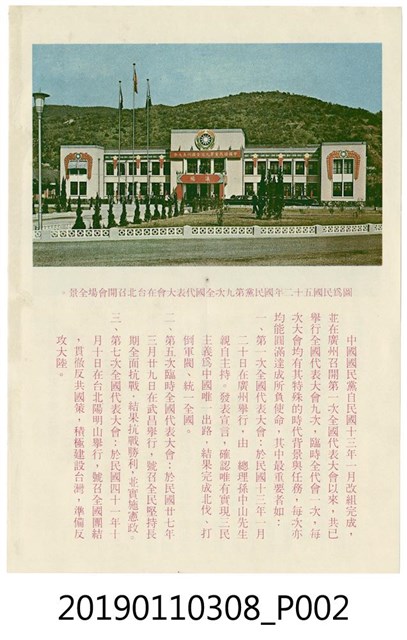 圖爲民國五十二年國民黨第九次全國代表大會在台北召開會場全景。
中國國民黨自民國十三年一月改組完成,
並在廣州召開第一次全國代表大會以來,共已
舉行全國代表大會九次,臨時全代會一次,每
次大會均有其特殊的時代背景與任務,每次亦
均能圓滿達成所負使命,其中最重要者如:
一、第一次全國代表大會:於民國十三年一月
二十日在廣州舉行,由 總理孫中山先生
親自主持。發表宣言,確認唯有實現三民
主義爲中國唯一出路,結果完成北伐、打
倒軍閥、統一全國。
二、第五次臨時全國代表大會:於民國廿七年
三月廿九日在武昌舉行,號召全民堅持長
期全面抗戰,結果抗戰勝利,並實施憲政。
三、第七次全國代表大會:於民國四十一年十
月十日在台北陽明山舉行,號召全國團結
,貫徹反共國策,積極建設台灣,準備反
攻大陸。
20190110308_P002